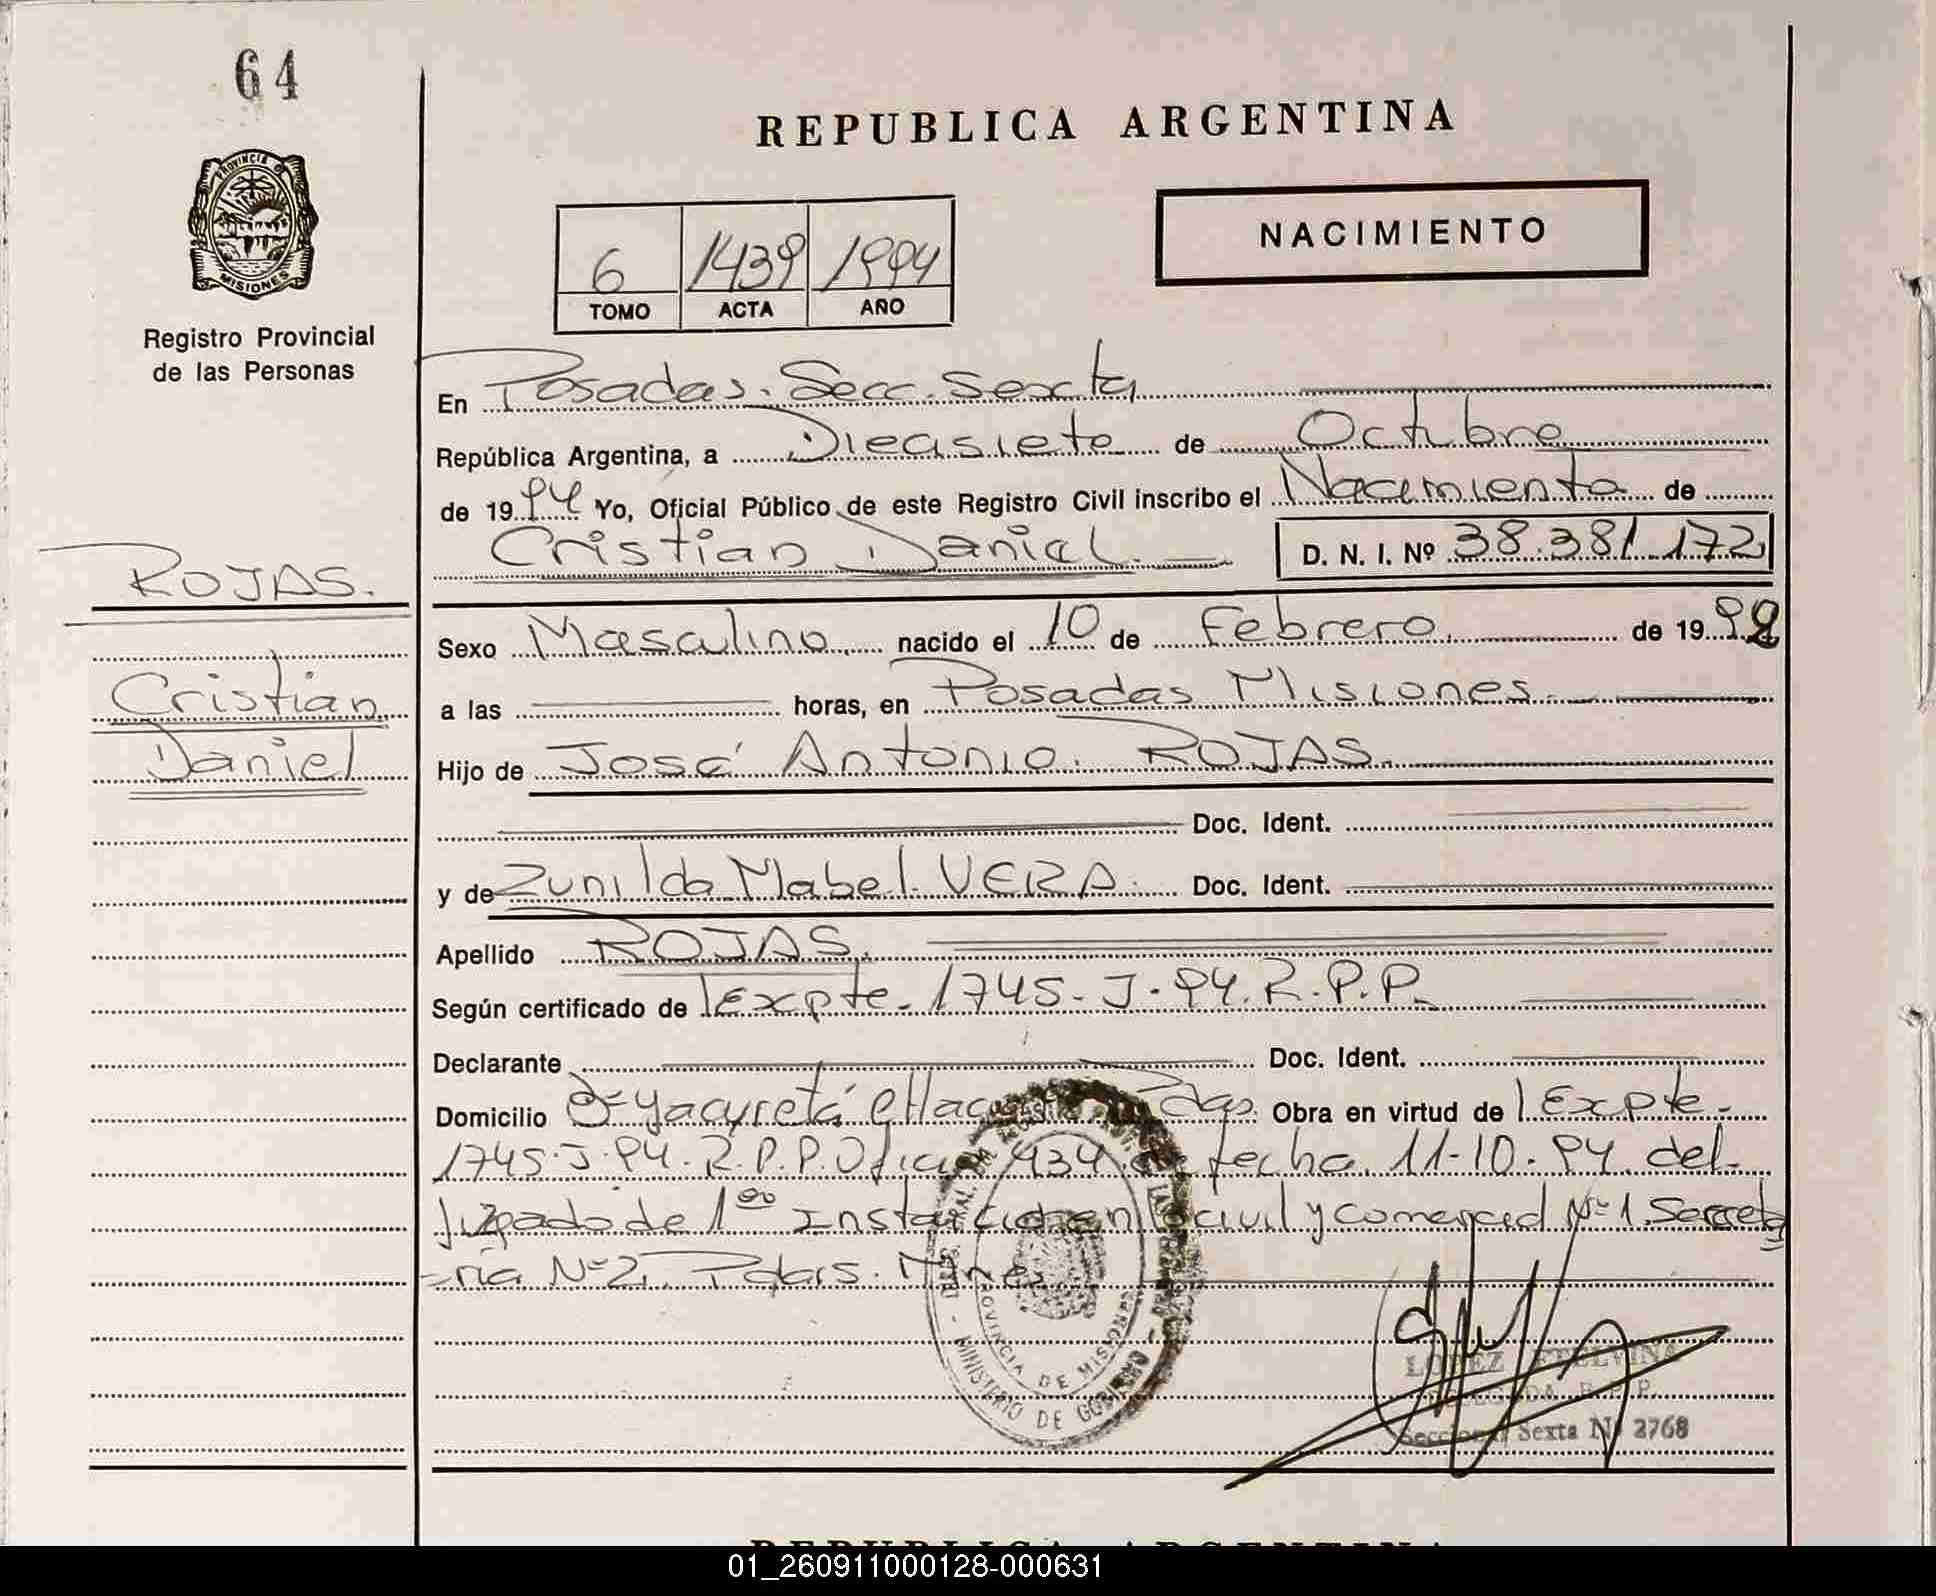 64
REPUBLICA ARGENTINA
PROVINCIA DE
MISIONES
Registro Provincial
de las Personas
6 1439 1994
TOMO ACTA AÑO
NACIMIENTO
En Posadas. Secc. Sexta
República Argentina, a Diecisiete de Octubre
de 1994 Yo, Oficial Público de este Registro Civil inscribo el Nacimiento de
Cristian Daniel. D. N. I. Nº 38.381.172
ROJAS.
Cristian
Daniel
Sexo Masculino nacido el 10 de Febrero. de 1992
a las horas, en Posadas Misiones.
Hijo de José Antonio ROJAS.
Doc. Ident.
y de Zunilda Mabel VERA. Doc. Ident.
Apellido ROJAS.
Según certificado de Expte. 1745. J. 94. R.P.P.
Declarante Doc. Ident.
Domicilio Yacyretá e Pdas. Obra en virtud de Expte.
1745. J. 94. R.P.P. Oficio 1434 de fecha 11-10-94 del
Juzgado de 1ª Instancia en lo civil y comercial Nº 1. Secreta
-ria Nº 2. Pdas. Mnes
PROVINCIA DE MISIONES
MINISTERIO DE GOBIERNO
LOPEZ ETELVINA
DELEGADA R.P.P.
Seccional Sexta Nº 2768
REPUBLICA ARGENTINA
01_260911000128-000631